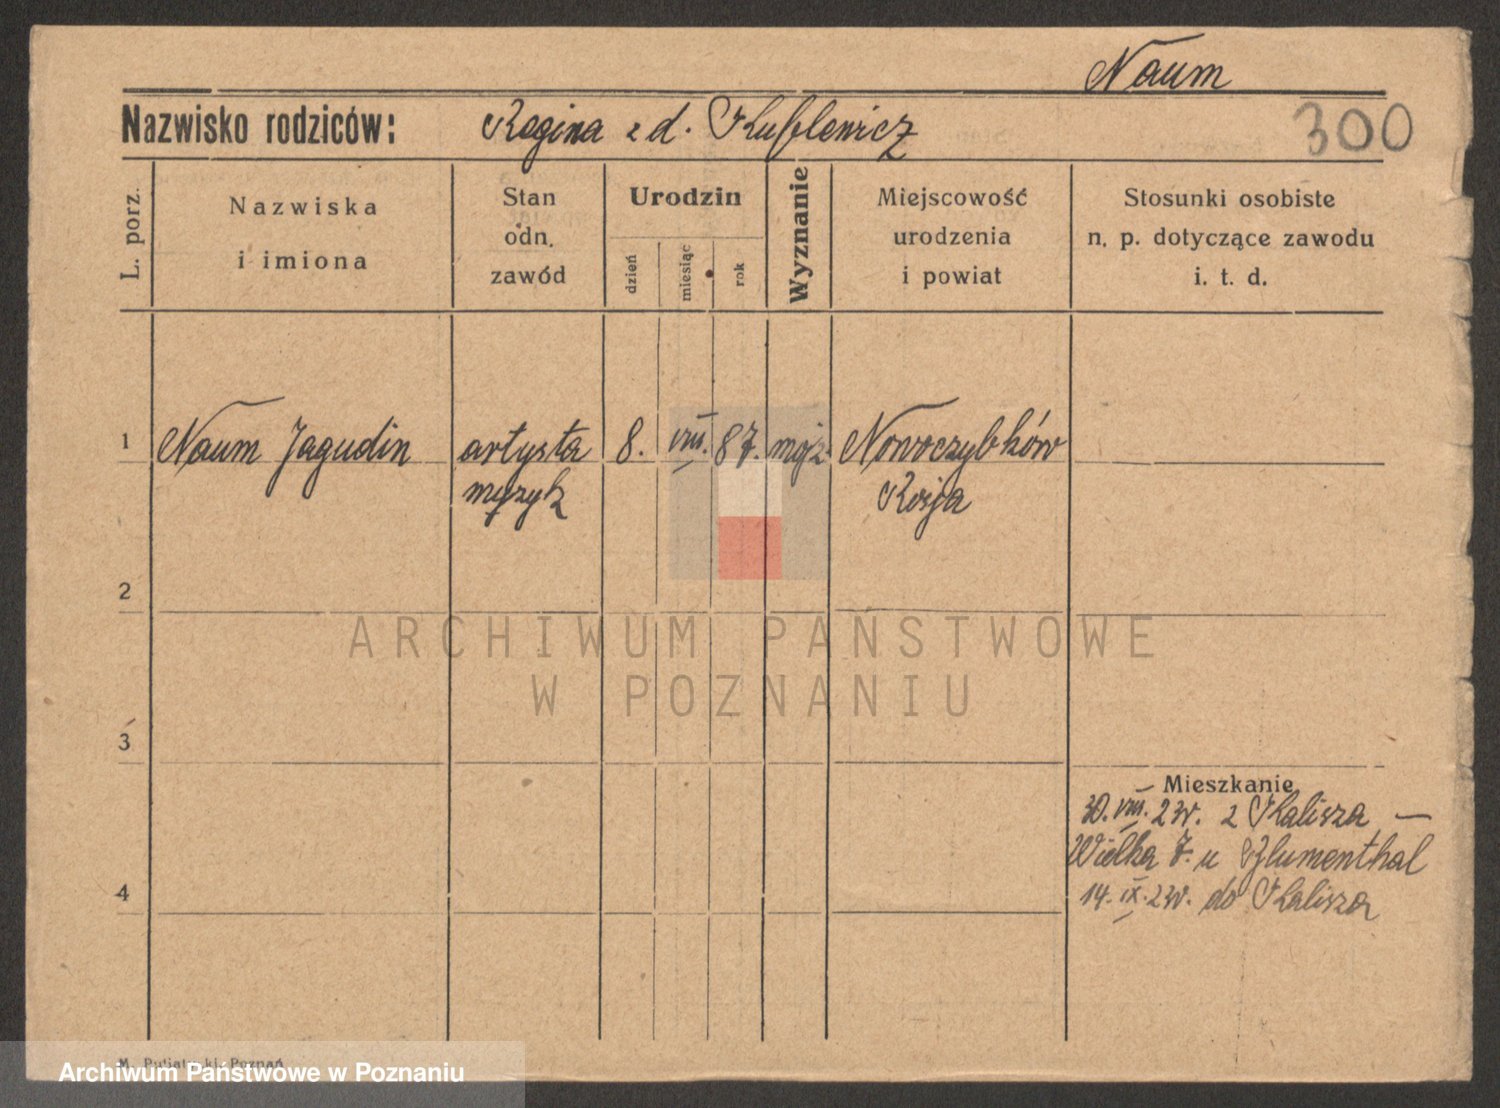 Naum
Nazwisko rodziców: Regina z d.
300
L. porz.
Nazwiska
i imiona
Stan
odn.
zawód
Urodzin
dzień
miesiąc
rok
Wyznanie
Miejscowość
urodzenia
i powiat
Stosunki osobiste
n. p. dotyczące zawodu
i. t. d.
1 Naum Jagudin artysta 8. VIII. 87. mojż. Nowoczybków
muzyk Rosja
2
ARCHIWUM PAŃSTWOWE
W POZNANIU
3
Mieszkanie
30. VIII. 23r. z Kalisza —
Wielka 7. u Blumenthal
14. IX. 23r. do Kalisza
4
Poznań
Archiwum Państwowe w Poznaniu